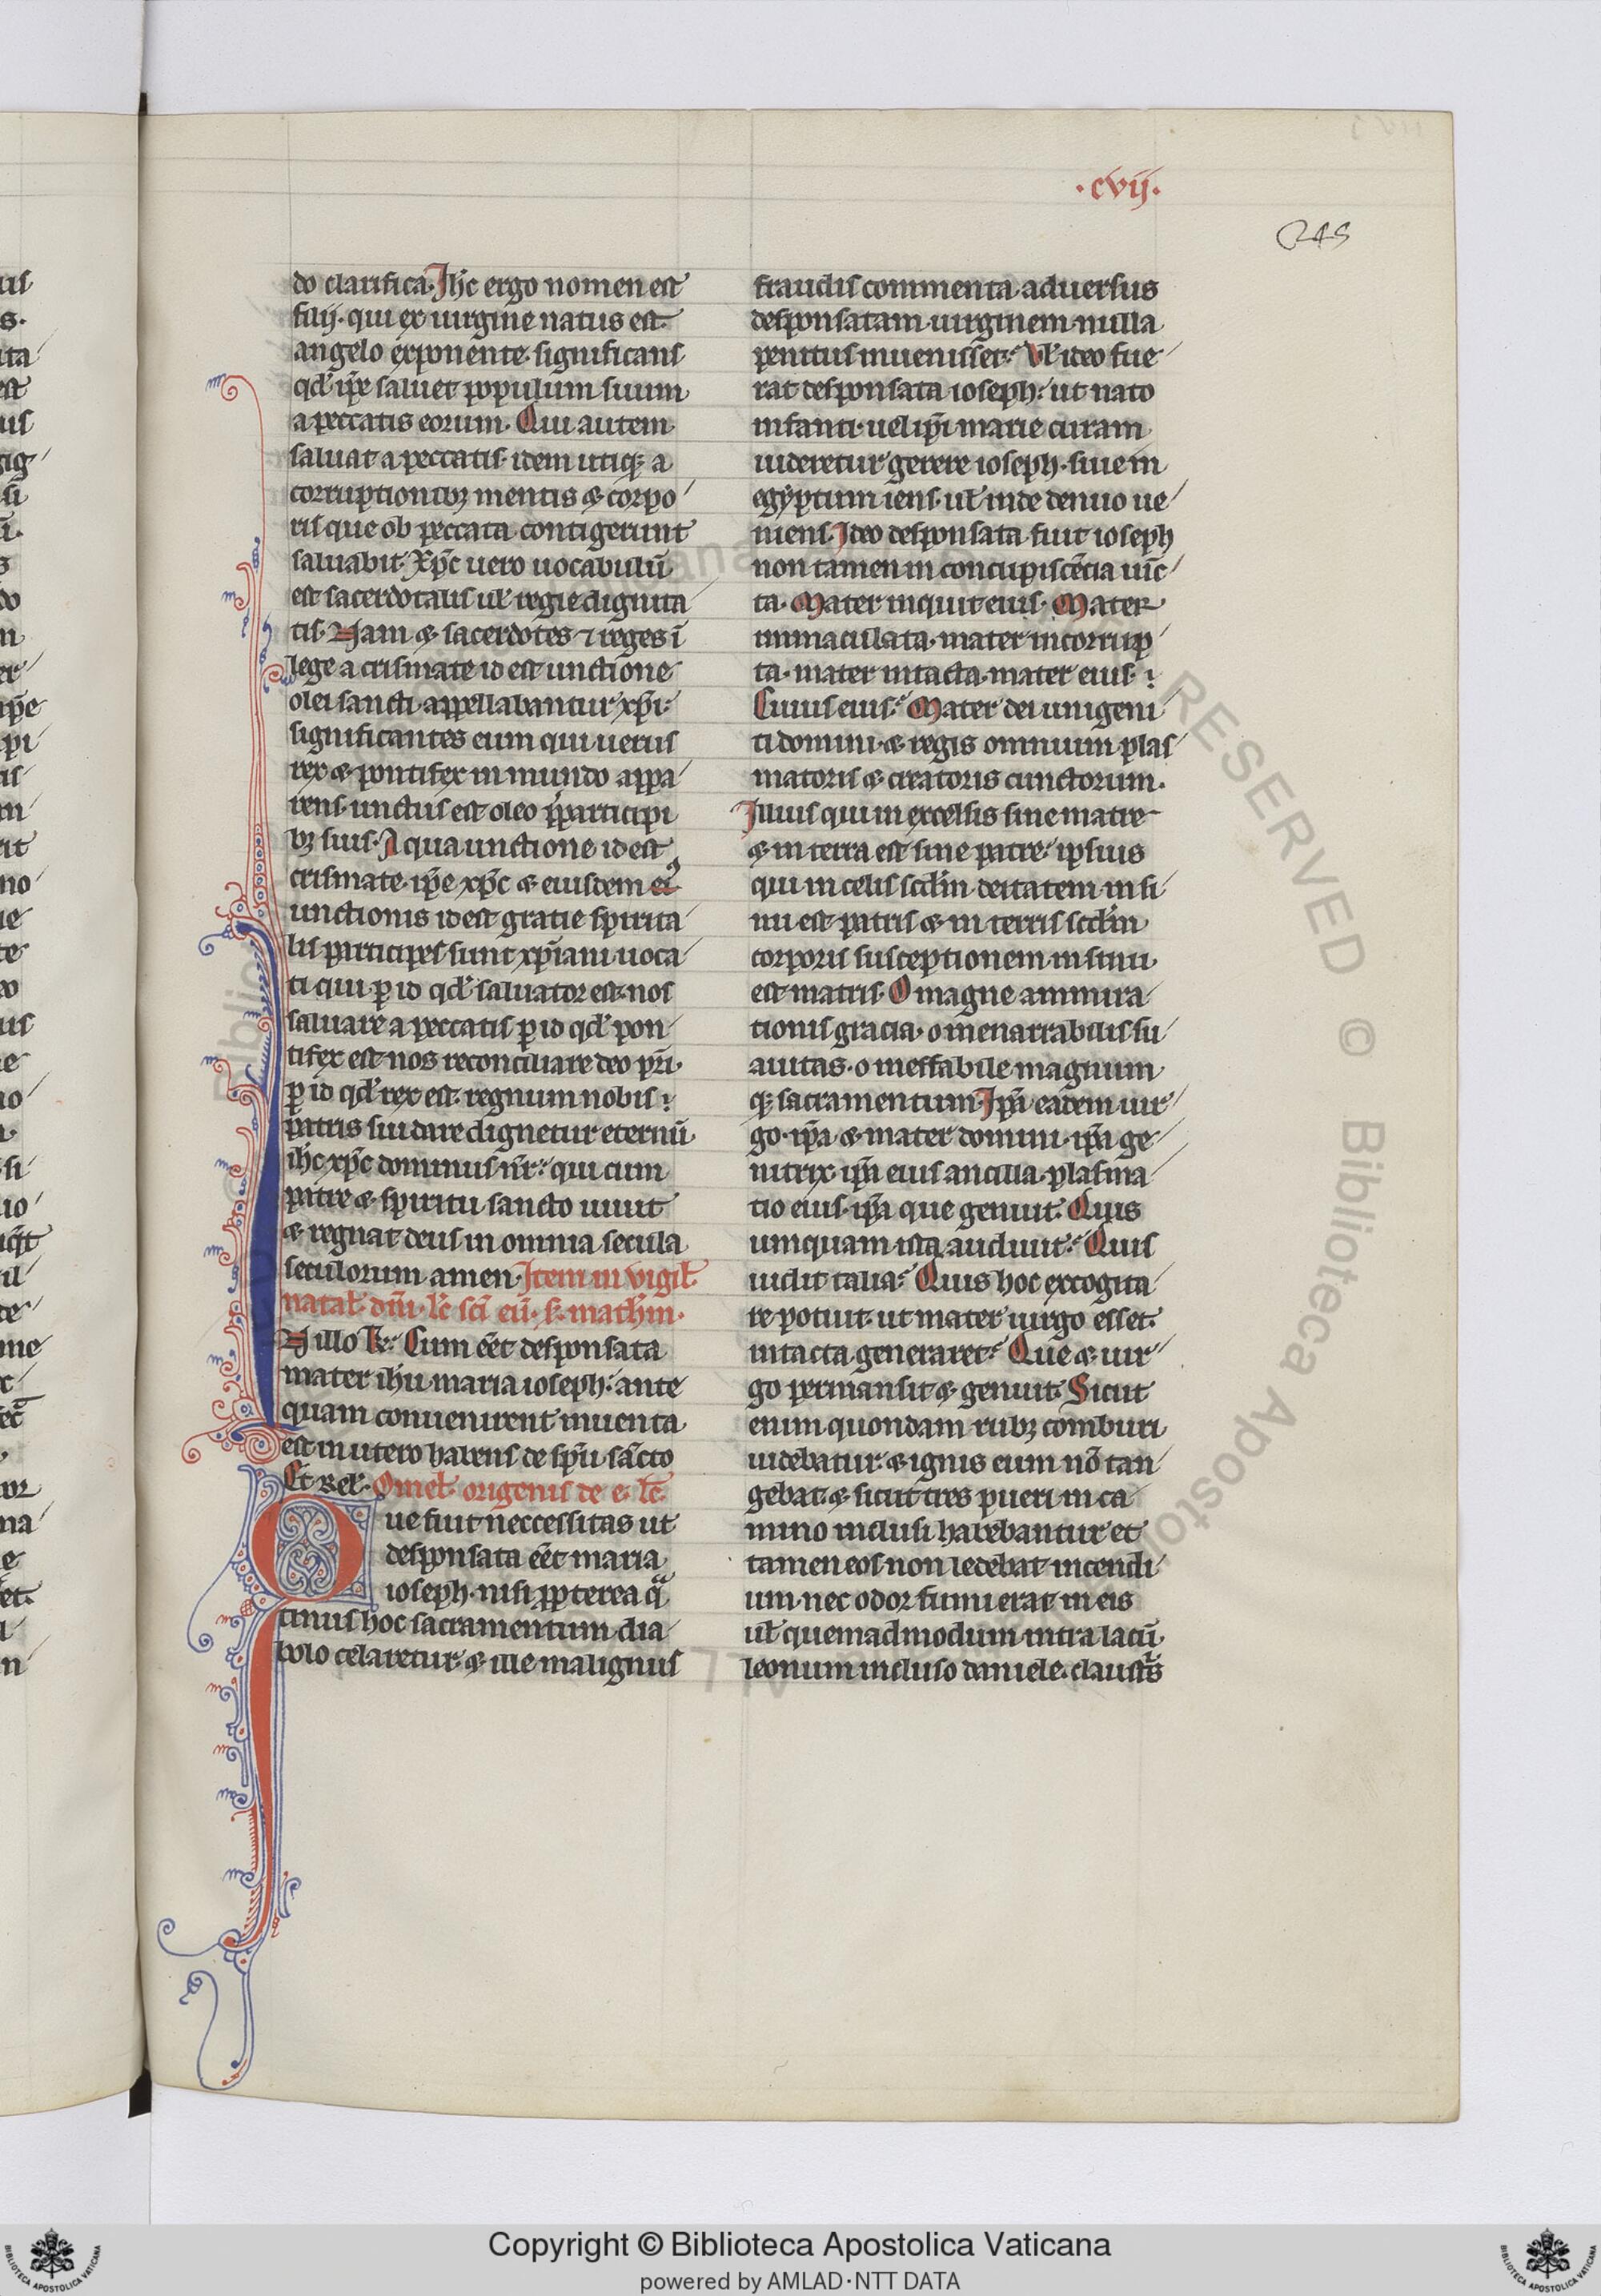 ·cvij·
245
do clarifica. Ihc̄ ergo nomen est
filij. qui ex uirgine natus est.
angelo exponente. significans
qd̕ ip̄e saluet populum suum
a peccatis eorum. Qui autem
saluat a peccatis. idem utiqꝫ a
corruptionibꝫ mentis & corpo
ris que ob peccata contigerunt
saluabit. Xp̄c uero uocabulū
est sacerdotalis ul̕ regie dignita
tis. Nam & sacerdotes ⁊ reges ī
lege a crismate id est unctione
olei sancti appellabantur xp̄i.
significantes eum qui uerus
rex & pontifex in mundo appa
rens. unctus est oleo p̄ participi
bꝫ suis. A qua unctione id est
crismate. ip̄e xp̄c & eiusdem
unctionis id est gratie spirita
lis participes sunt xp̄iani uoca
ti qui ꝑ id qd̕ saluator est. nos
saluare a peccatis ꝑ id qd̕ pon
tifex est nos reconciliare deo pr̄i.
ꝑ id qd̕ rex est. regnum nobis
patris sui dare dignetur eternū.
ihc̄ xp̄c dominus nr̄. qui cum
patre & spiritu sancto uiuit
& regnat deus in omnia secula
seculorum amen. Item in vigil̕
natal̕ dn̄i. lc̄ sc̄i eū. s. math̕m.
N illo t̄. Cum eēt desponsata
mater ih̄u maria ioseph. ante
quam conuenirent inuenta
est in utero habens de sp̄u sāc̄to
Et rel̕. Omel̕. origenis de e. lc̄.
Que fuit neccessitas ut
desponsata eēt maria
ioseph. nisi ꝓpterea qͣ
tinus hoc sacramentum dia
bolo celaretur. & ille malignus
fraudis commenta aduersus
desponsatam uirginem nulla
penitus inuenisset. Vl̕ ideo fue
rat desponsata ioseph. ut nato
infanti. uel ip̄i marie curam
uideretur gerere ioseph. siue in
egyptum iens. ul̕ inde denuo ue
niens. Ideo desponsata fuit ioseph
non tamen in concupiscētia iūc
ta. Mater inquit eius. Mater
immaculata. mater incorrup
ta. mater intacta. mater eius.
Cuius eius. Mater dei unigeni
ti domini. & regis omnium plas
matoris & creatoris cunctorum.
Illius qui in excelsis sine matre
& in terra est sine patre. ipsius
qui in celis scd̕m deitatem in si
nu est patris & in terris scd̕m
corporis susceptionem in sinu
est matris. O magne ammira
tionis gracia. o inenarrabilis su
auitas. o ineffabile magnum
qꝫ sacramentum. Ip̄a eadem uir
go. ip̄a & mater domini. ip̄a ge
nitrix. ip̄a eius ancilla. plasma
tio eius. ip̄a que genuit. Quis
umquam ista audiuit. Quis
uidit talia. Quis hoc excogita
re potuit. ut mater uirgo esset.
intacta generaret. Que & uir
go permansit & genuit. Sicut
enim quondam rubꝫ comburi
uidebatur. & ignis eum nō tan
gebat. & sicut tres pueri in ca
mino inclusi habebantur et
tamen eos non ledebat incendi
um. nec odor fumi erat in eis
ul̕ quemadmodum intra lacū
leonum incluso daniele. claust̕s
Copyright © Biblioteca Apostolica Vaticana
powered by AMLAD·NTT DATA